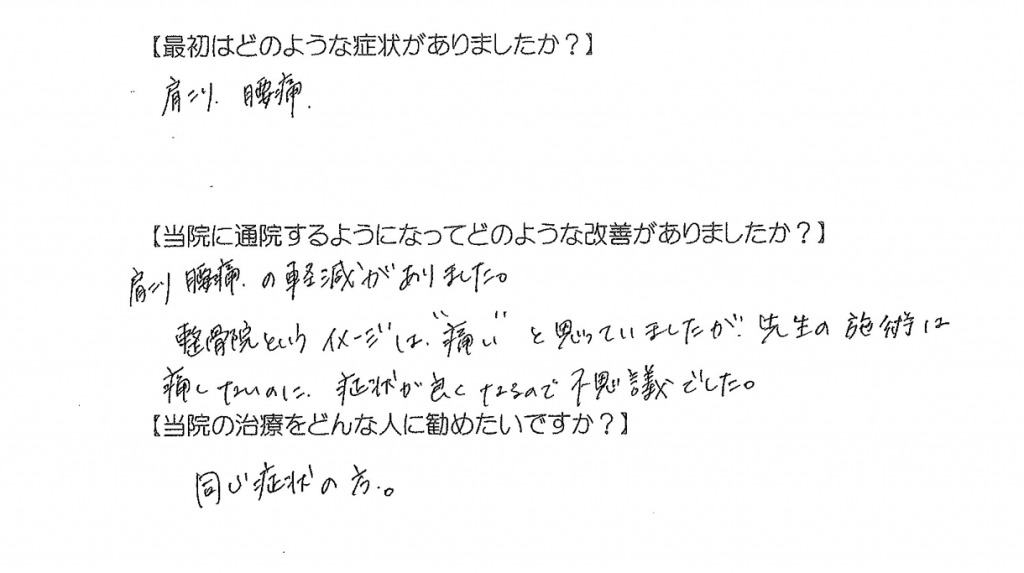 【最初はどのような症状がありましたか？】
肩こり. 腰痛.
【当院に通院するようになってどのような改善がありましたか？】
肩こり 腰痛.の軽減がありました。
整骨院というイメージは、"痛い"と思っていましたが、先生の施術は
痛くないのに、症状が良くなるので不思議でした。
【当院の治療をどんな人に勧めたいですか？】
同じ症状の方。